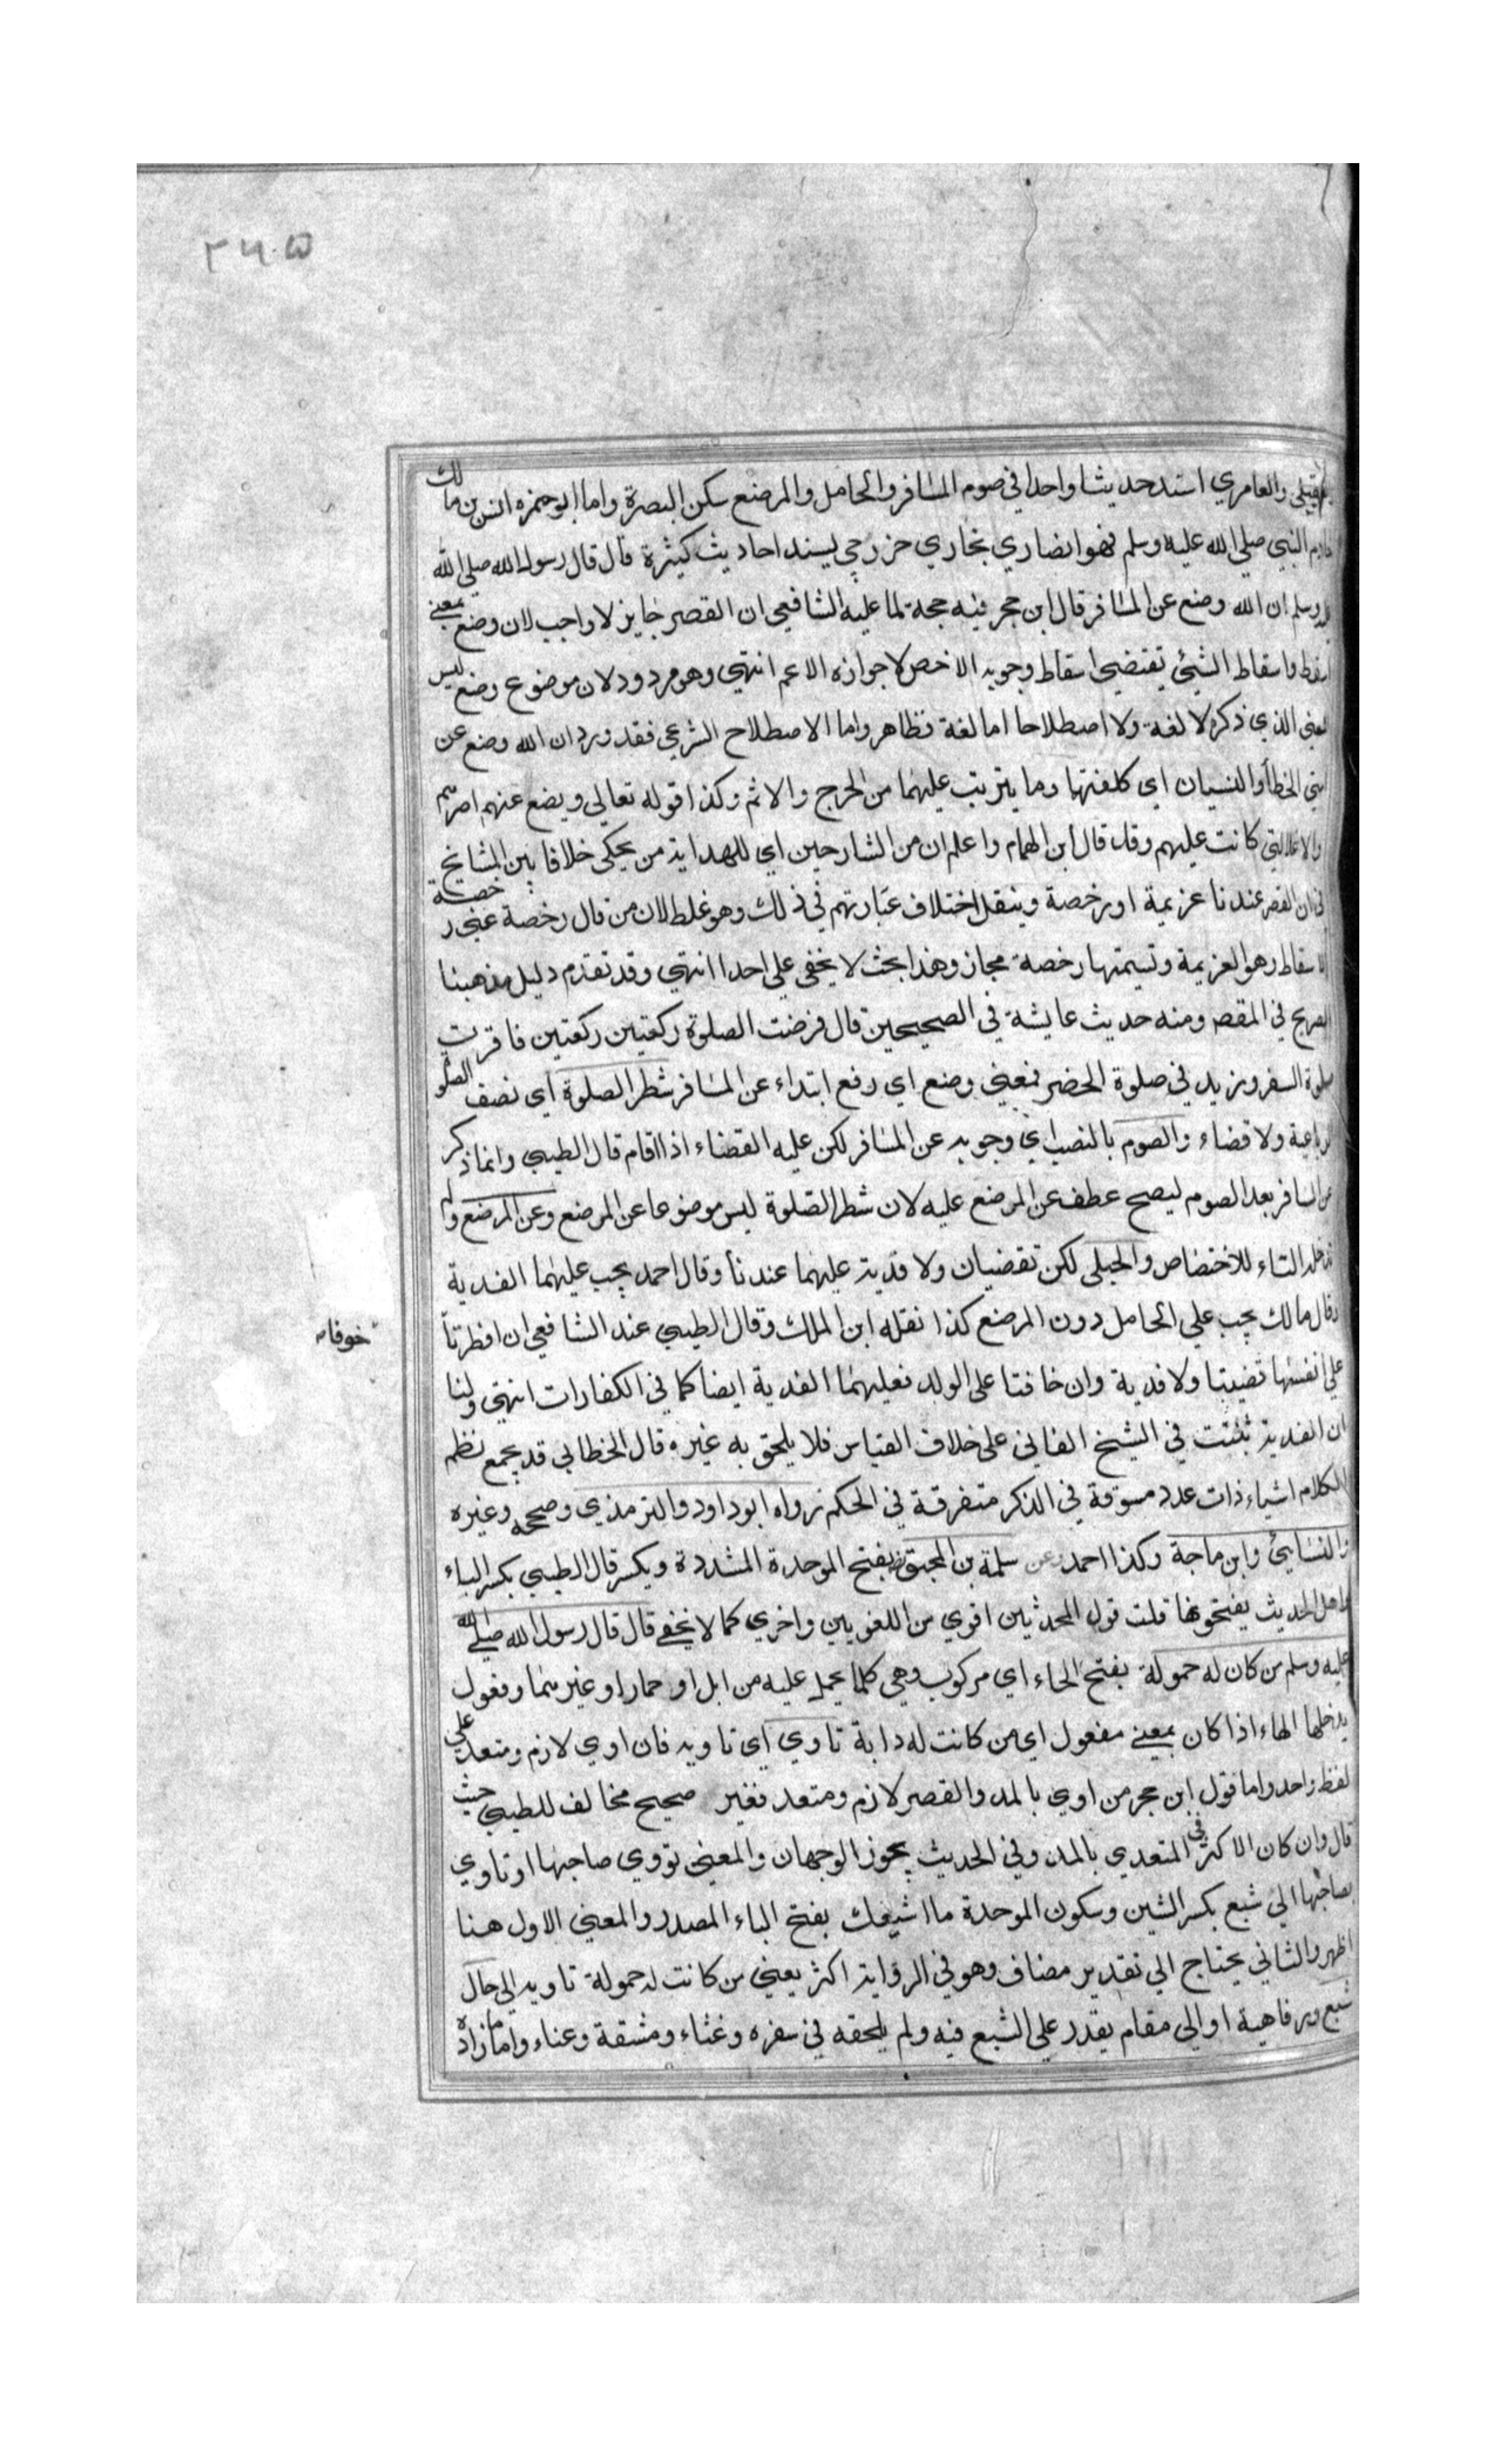 ٣٦٠٥
والعامري اسند حديثا واحدا في صوم المسافر والحامل والمرضع سكن البصرة واما ابو حمزه انس بن مالك
خادم النبي صلي الله عليه وسلم فهو انصاري نجاري خزرجي يسند احاديث كثيرة قال قال رسول الله صلي الله
عليه وسلم ان الله وضع عن المسافر قال ابن حجر فيه حجة لما عليه الشافعي ان القصر جايز لا واجب لان وضع بمعني
اسقط واسقاط الشيئ يقتضي اسقاط وجوبه الاخص لا جوازه الاعم انتهي وهو مردود لان موضوع وضع ليس
لمعني الذي ذكره لا لغة ولا اصطلاحا اما لغة فظاهر واما الاصطلاح الشرعي فقد ورد ان الله وضع عن
امتي الخطأ والنسيان اي كلفتها وما يترتب عليهما من الحرج والاثم وكذا قوله تعالي ويضع عنهم اصرهم
والاغلال التي كانت عليهم وقد قال ابن الهمام واعلم ان من الشارحين اي للهداية من يحكي خلافا بين المشايخ
في ان القصر عندنا عزيمة او رخصة وينقل اختلاف عبارتهم في ذلك وهو غلط لان من قال رخصة عني رخصة
الاسقاط وهو العزيمة وتسيمتها رخصة مجاز وهذا بحث لا يخفي علي احد انتهي وقد تقدم دليل مذهبنا
الصريح في المقصر ومنه حديث عايشة في الصحيحين قال فرضت الصلوة ركعتين ركعتين فاقرت
صلوة السفر وزيد في صلوة الحضر فمعني وضع اي رفع ابتداء عن المسافر شطر الصلوة اي نصف الصلو
الرباعية ولا قضاء والصوم بالنصب اي وجوبه عن المسافر لكن عليه القضاء اذا اقام قال الطيبي وانما ذكر
عن المسافر بعد الصوم ليصح عطف عن المرضع عليه لان شطر الصلوة ليس موضوعا عن المرضع وعن المرضع ولم
تدخله التاء للاختصاص والحبلي لكن تقضيان ولا فدية عليهما عندنا وقال احمد يجب عليهما الفدية
وقال مالك يجب علي الحامل دون المرضع كذا نقله ابن الملك وقال الطيبي عند الشافعي ان افطرتا
خوفا
علي انفسهما قضيتا ولا فدية وان خافتا علي الولد فعليهما الفدية ايضا كما في الكفارات انتهي ولنا
ان الفدية ثبتت في الشيخ الفاني علي خلاف القياس فلا يلحق به غيره قال الخطابي قد يجمع نظم
الكلام اشياء ذات عدد مسوقة في الذكر متفرقة في الحكم رواه ابو داود والترمذي وصححه وغيره
والنسايئ وابن ماجة وكذا احمد وعن سلمة بن المحبق بفتح الموحدة المشددة ويكسر قال الطيبي بكسر الباء
واهل الحديث يفتحونها قلت قول المحدثين اقوي من اللغويين واخري كما لا يخفي قال قال رسول الله صلي الله
عليه وسلم من كان له حمولة بفتح الحاء اي مركوب وهي كلما يحمل عليه من ابل او حمار او غيرهما وفعول
يدخلها الهاء اذا كان بمعني مفعول اي من كانت له دابة تاوي اي تاويه فان اوي لازم ومتعد علي
لفظ واحد واما قول ابن حجر من اوي بالمد والقصر لازم ومتعد فغير صحيح مخالف للطيبي حيث
قال وان كان الاكثر في المتعدي بالمد وفي الحديث يجوز الوجهان والمعني تؤوي صاحبها او تاوي
بصاحبها الي شبع بكسر الشين وسكون الموحدة ما اشبعك بفتح الباء المصدر والمعني الاول هنا
اظهر والثاني يحتاج الي تقدير مضاف وهو في الرواية اكثر يعني من كانت له حمولة تاويه الي حال
شبع ورفاهية او الي مقام يقدر علي الشبع فيه ولم يلحقه في سفره وعثاء ومشقة وعناء واما زاده